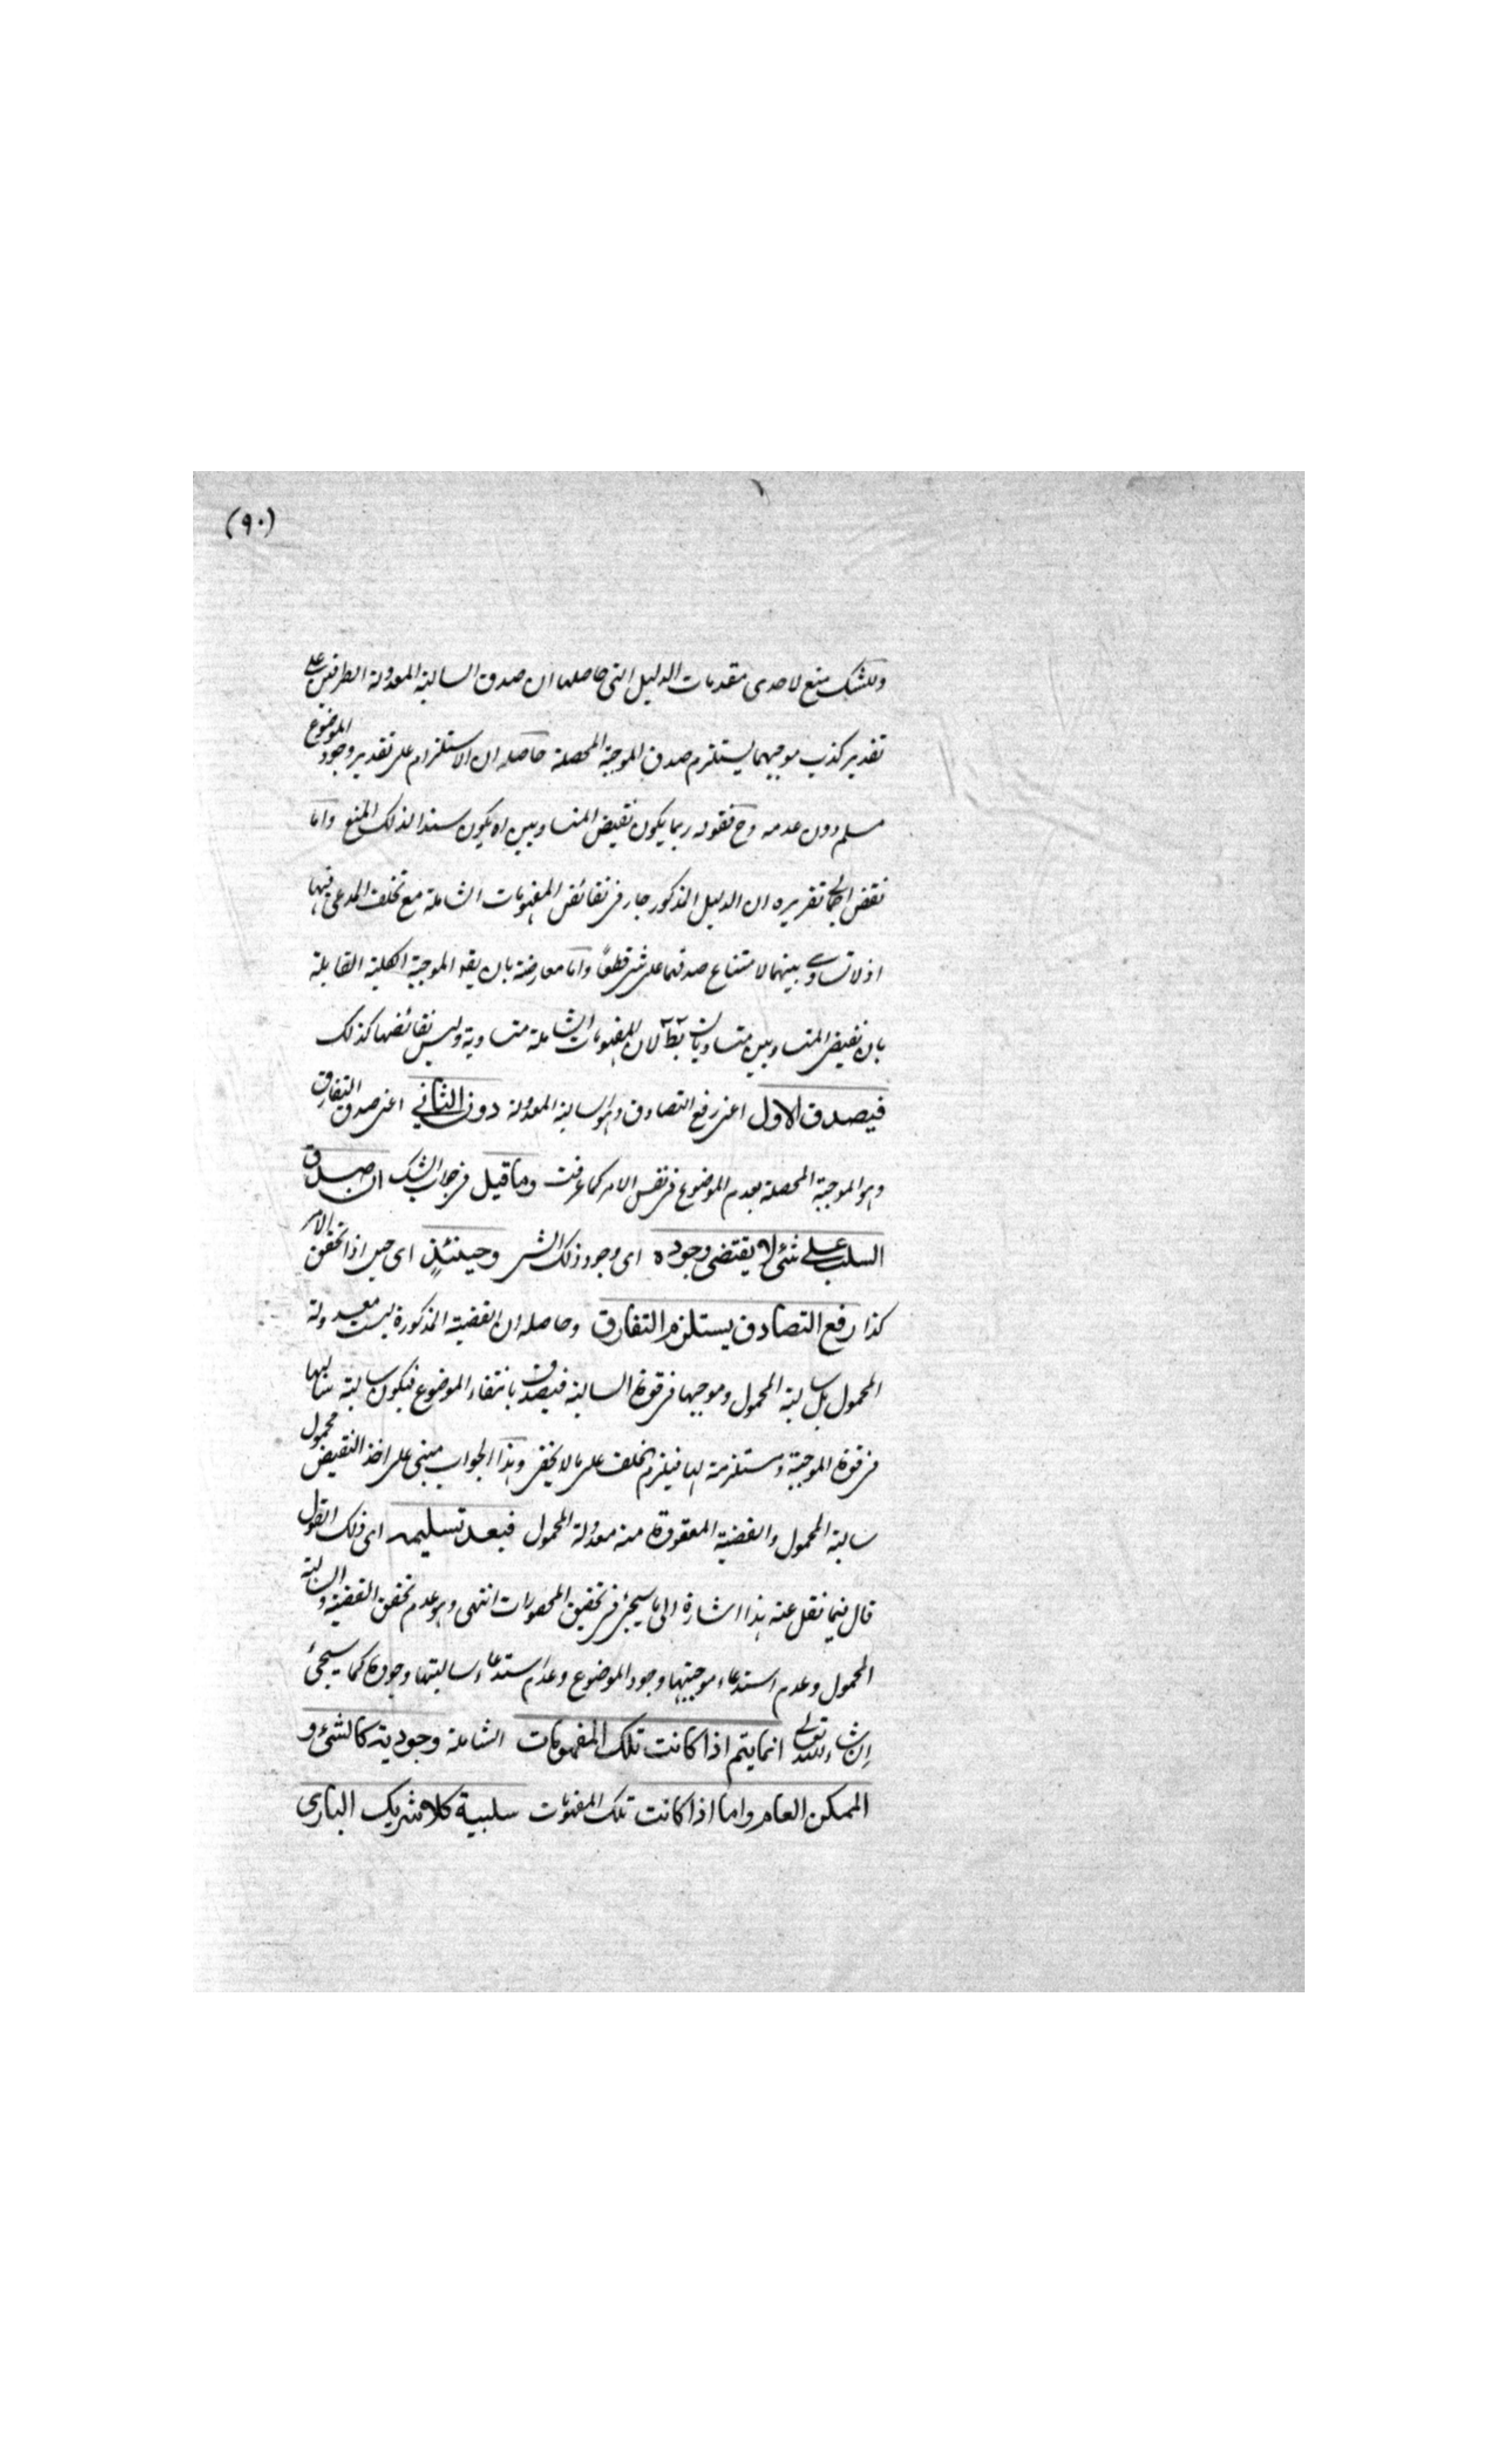 (٩٠)
وللشك منع لاحدى مقدمات الدليل التى حاصلها ان صدق السالبة المعدولة الطرفين على
تقدير كذب موجبهما يستلزم صدق الموجبة المحصلة حاصله ان الاستلزام على تقدير وجود الموضوع
مسلم دون عدمه وح فقوله ربما يكون نقيض المتساويين اه يكون سندا لذلك المنع واما
نقض اجمالى تقريره ان الدليل المذكور جار فى نقائض المفهومات الشاملة مع تخلف المدعى فيها
اذ لا تساوى بينهما لامتناع صدقهما على شئ قطعًا واما معارضة بان يقه الموجبة الكلية القائلة
بان نقيض المتساويين متساويان بط لان المفهومات الشاملة متساوية وليس نقائضها كذلك
فيصدق الاول اعنى رفع التصادق وهو السالبة المعدولة دون الثاني اعنى صدق التفارق
وهو الموجبة المحصلة بعدم الموضوع فى نفس الامر كما عرفت وما قيل فى جواب الشك ان صدق
السلب على شئ لا يقتضى وجوده اى وجود ذلك الشئ وحينئذٍ اى حين اذا تحقق الامر
كذا رفع التصادق يستلزم التفارق وحاصله ان القضية المذكورة ليست معدولة
المحمول بل سالبة المحمول وموجبها فى قوة السالبة فيصدق بانتفاء الموضوع فيكون سالبة سالبها
فى قوة الموجبة ومستلزمة لها فيلزم الخلف على ما لا يخفى وهذا الجواب مبنى على اخذ النقيض محمول
سالبة المحمول والقضية المعقودة منه معدولة المحمول فبعد تسليمه اى ذلك القول
قال فيما نقل عنه هذا اشارة الى ما سيجئ فى تحقيق المحصورات انتهى وهو عدم تحقق القضية السالبة
المحمول وعدم استدعاء موجبتها وجود الموضوع وعدم استدعاء سالبتها وجوده كما سيجئ
إن شاء الله تعالى انما يتم اذا كانت تلك المفهومات الشاملة وجودية كالشئ و
الممكن العام واما اذا كانت تلك المفهومات سلبية كلا شريك البارى